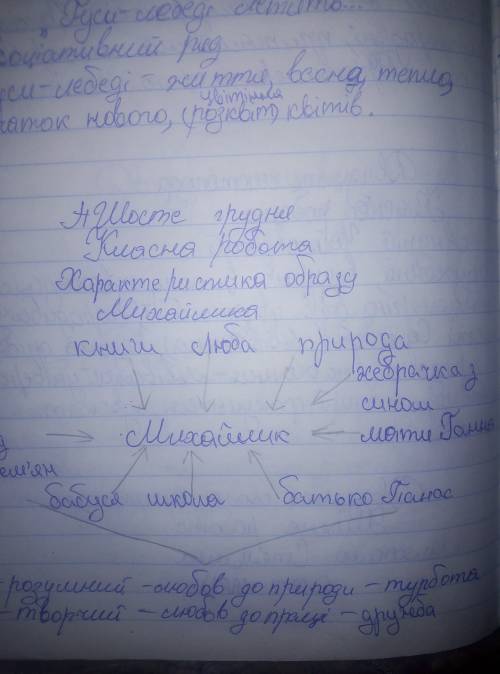 "Гуси-лебеді летять...
соціативний ряд
уси-лебеді - життя, весна, тепло,
цвітіння
чаток нового, (розквіт) квітів.
Шосте грудня
Класна робота
Характеристика образу
Михайлика
книги Люба природа
жебрачка з
сином
д Михайлик мати Ганна
ем'ян
бабуся школа батько Панас
- розумний - любов до природи - турбота
- творчий - любов до праці - дружба